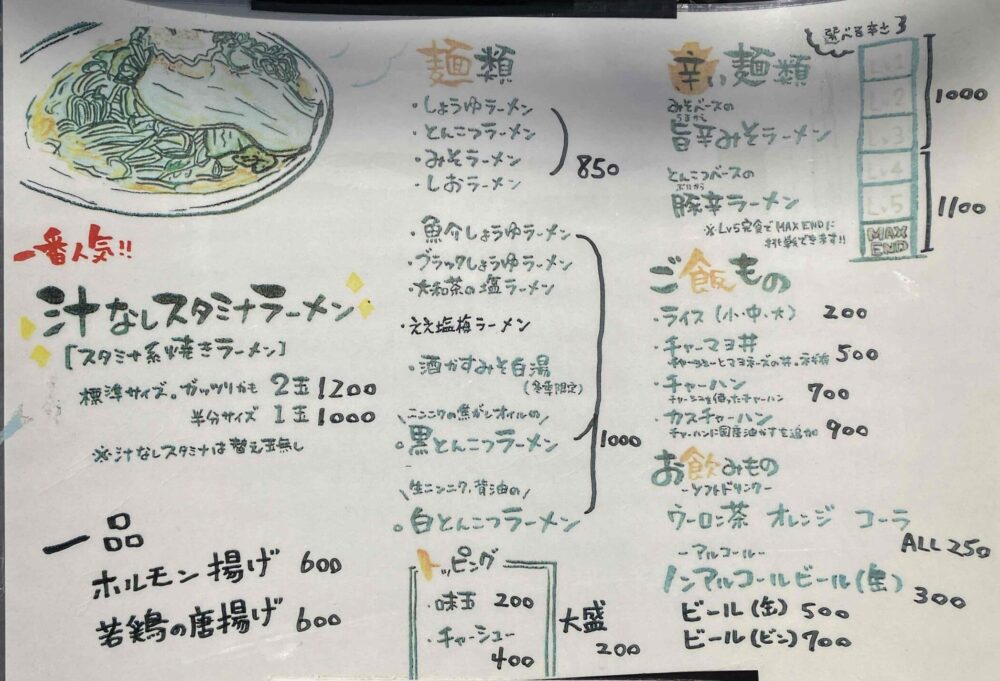 一番人気!!
汁なしスタミナラーメン
[スタミナ系焼きラーメン]
標準サイズ。ガッツリかも 2玉 1200
半分サイズ 1玉 1000
※汁なしスタミナは替え玉無し
一品
ホルモン揚げ 600
若鶏の唐揚げ 600
麺類
・しょうゆラーメン
・とんこつラーメン
・みそラーメン
・しおラーメン
850
・魚介しょうゆラーメン
・ブラックしょうゆラーメン
・大和茶の塩ラーメン
・ええ塩梅ラーメン
・酒かすみそ白湯
(冬季限定)
ニンニクの焦がしオイルの
。黒とんこつラーメン
\生ニンニク、背油の/
。白とんこつラーメン
1000
トッピング
・味玉 200
・チャーシュー
400
大盛
200
辛い麺類
みそベースの
うまから
旨辛みそラーメン
とんこつベースの
ぶたから
豚辛ラーメン
※Lv5完食でMAX ENDに
挑戦できます!!
選べる辛さ
Lv.1
Lv.2
Lv.3
Lv.4
Lv.5
MAX
END
1000
1100
ご飯もの
・ライス(小・中・大) 200
・チャーマヨ丼 500
チャーシューとマヨネーズの丼。
・チャーハン 700
チャーシューを使ったチャーハン
・カスチャーハン 900
チャーハンに国産油かすを追加
お飲みもの
-ソフトドリンク-
ウーロン茶 オレンジ コーラ
ALL 250
-アルコール-
ノンアルコールビール(缶)
300
ビール(缶) 500
ビール(ビン) 700